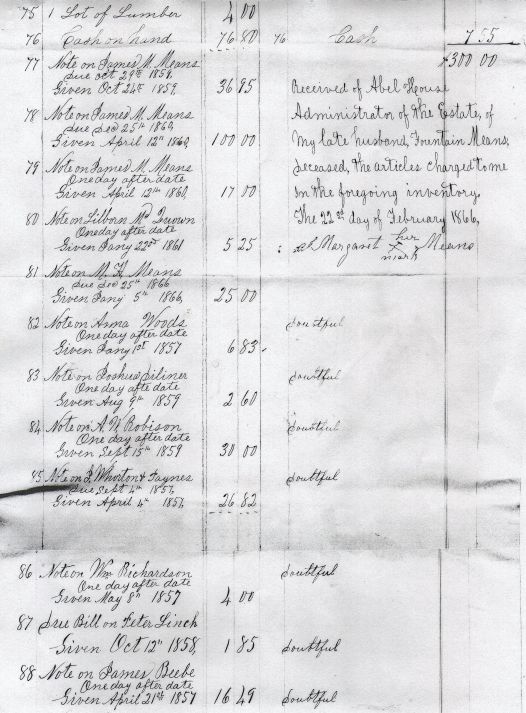 75 1 Lot of Lumber 4 00
76 Cash on hand 76 80 76 Cash 7 55
77 Note on James M. Means $300 00
Due Oct 29th 1859,
Given Oct 24th 1859 36 95 Received of Abel House
78 Note on James M. Means Administrator of the Estate, of
Due Dec 25th 1860,
Given April 12th 1860, 100 00 My late husband, Fountain Means,
79 Note on James M. Means deceased, the articles charged to me
One day after date
Given April 12th 1860, 17 00 In the foregoing inventory,
80 Note on Lilborn Mc The 22nd day of February 1866,
One day after date
Given Jany 22nd 1861 5 25 Margaret her x mark Means
81 Note on M. H. Means
Due Dec 25th 1866
Given Jany 5th 1866, 25 00
82 Note on Anna Woods doubtful
One day after date
Given Jany 1st 1857 6 83
83 Note on Joshua doubtful
One day after date
Given Aug 9th 1859 2 60
84 Note on A. N. Robison doubtful
One day after date
Given Sept 15th 1859 30 00
85 Note on Whorton & Jaynes doubtful
Due Sept 4th 1857,
Given April 4th 1857, 26 82
86 Note on Wm Richardson doubtful
One day after date
Given May 8th 1857 4 00
87 Due Bill on Peter Linch
Given Oct 12th 1858, 1 85 doubtful
88 Note on James Beebe
One day after date
Given April 21st 1857 16 49 doubtful